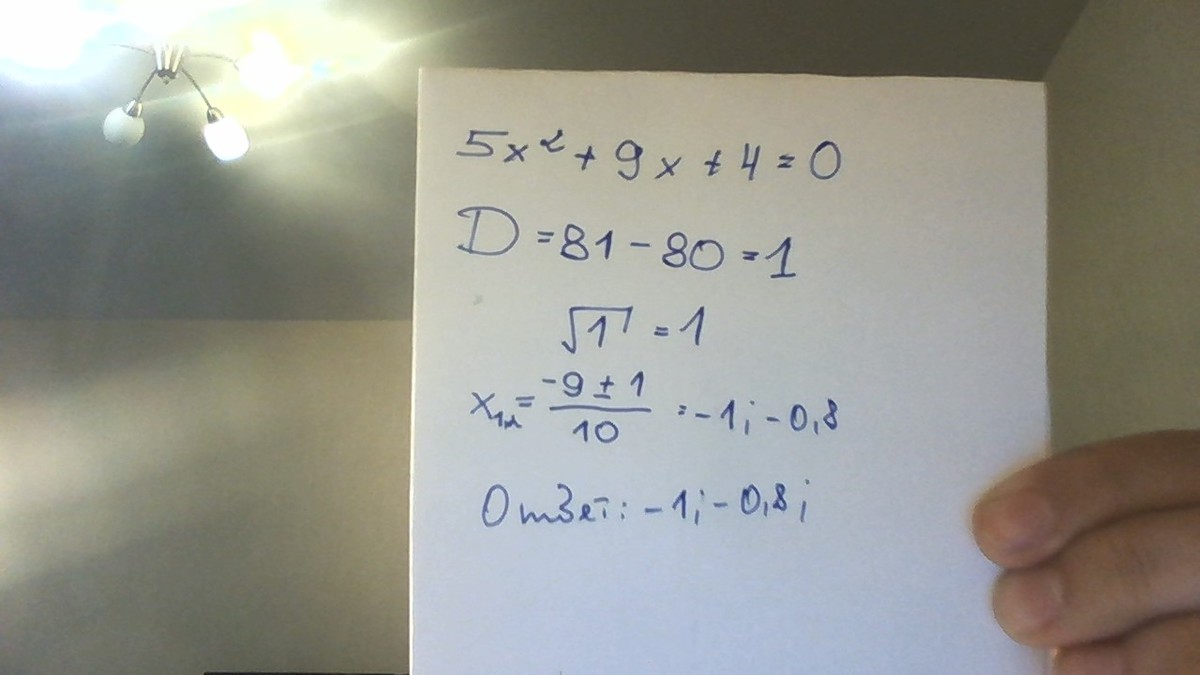 5x² + 9x + 4 = 0
D = 81 - 80 = 1
√1 = 1
x₁,₂ = (-9 ± 1)/10 = -1; -0,8
Ответ: -1; -0,8;